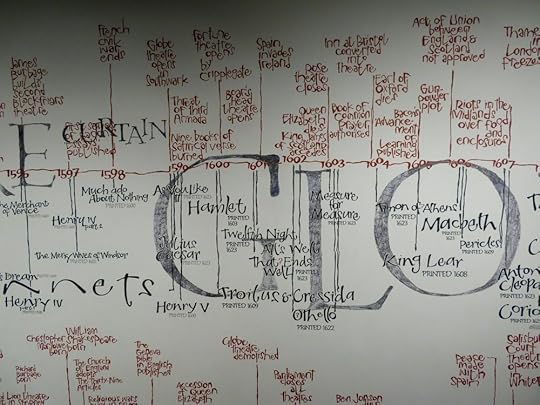 French
civil war
ends
James
Burbage
builds
second
Blackfriars
theatre
Globe
theatre
opens
in
Southwark
Fortune
theatre
opens
by
Cripplegate
Spain
invades
Ireland
Inn at Bristol
converted
into
theatre
Act of Union
between
England &
Scotland
not approved
Thames
London
freezes
Threat of
third
Armada
Bear's
head
theatre
opens
Rose
theatre
closes
Queen
Elizabeth
dies
King James
of Scotland
accedes
Book of
Common
Prayer
authorised
Earl of
Oxford
dies
Bacon's
Advance-
ment of
Learning
published
Gun-
powder
plot
Riots in the
Midlands
over food
and
enclosures
Nine books of
satirical verse
burned
published
E CURTAIN
1596 1597 1598 1599 1600 1601 1602 1603 1604 1605 1606 1607
GLO
The Merchant
of Venice
Henry IV
part 2
Much ado
About Nothing
PRINTED 1600
The Merry Wives of Windsor
As You Like
It
PRINTED 1623
Hamlet
PRINTED
1603
Julius
Caesar
PRINTED 1623
Twelfth Night
PRINTED
1623
All's Well
That Ends
Well
PRINTED
1623
Measure
for
Measure
PRINTED 1623
Timon of Athens
PRINTED 1623
Macbeth
PRINTED
1623
Pericles
PRINTED
1609
King Lear
PRINTED 1608
Dream
Henry IV
nnets
Henry V
PRINTED 1600
Troilus & Cressida
PRINTED 1609
Othello
PRINTED 1622
Antony
Cleopa
Corio
Christopher
Marlowe
born
William
Shakespeare
born
Richard
Burbage
born
The
Church of
England
adopts
the
Thirty Nine
Articles
Religious wars
The
Geneva
Bible
in English
published
Accession
of Queen
Elizabeth
Globe
theatre
demolished
Parliament
closes
all
theatres
Ben Jonson
Peace
made
with
Spain
Salisbury
Court
theatre
opens